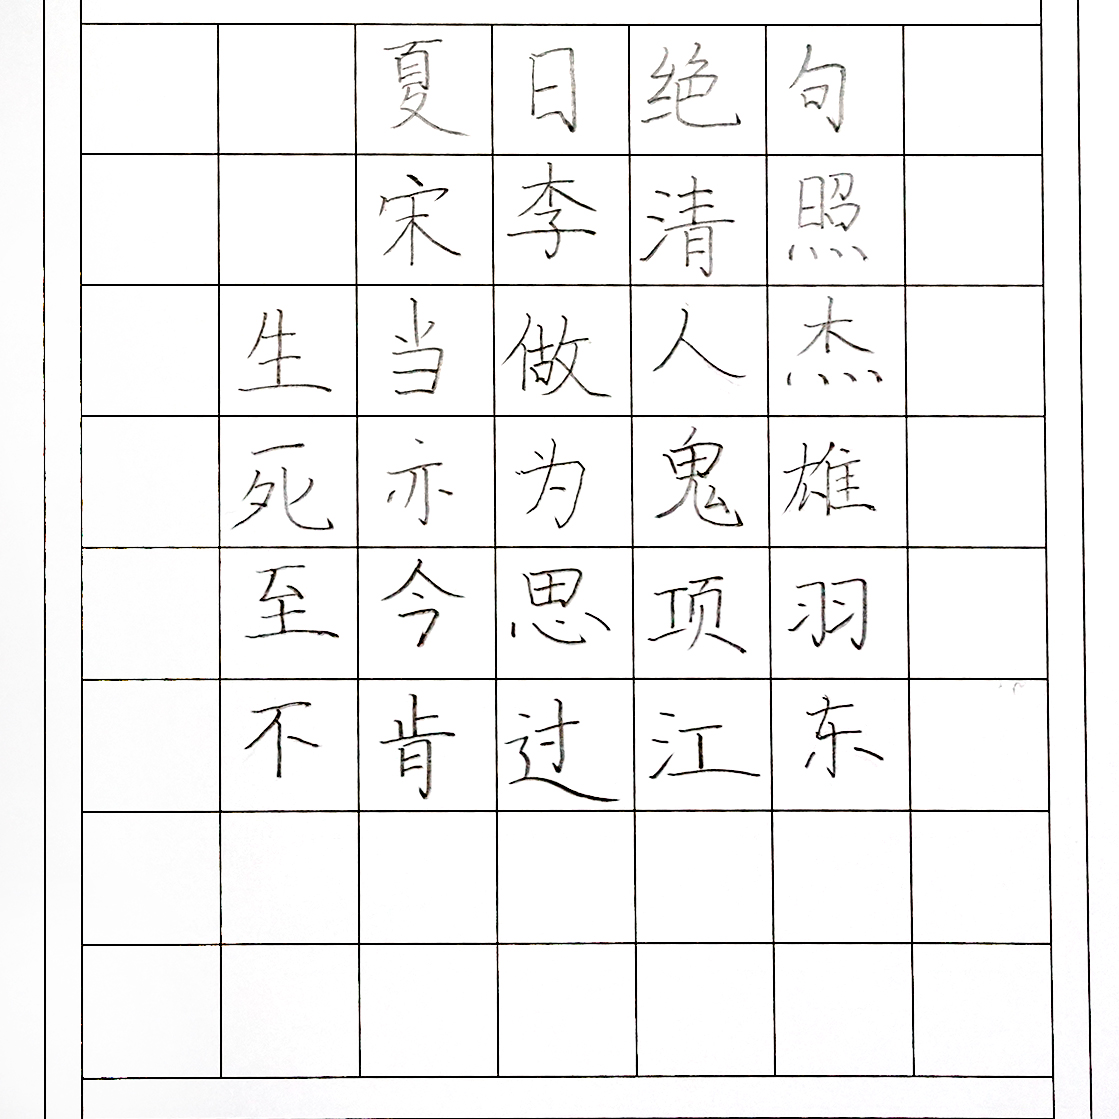 夏日绝句
宋李清照
生当做人杰
死亦为鬼雄
至今思项羽
不肯过江东